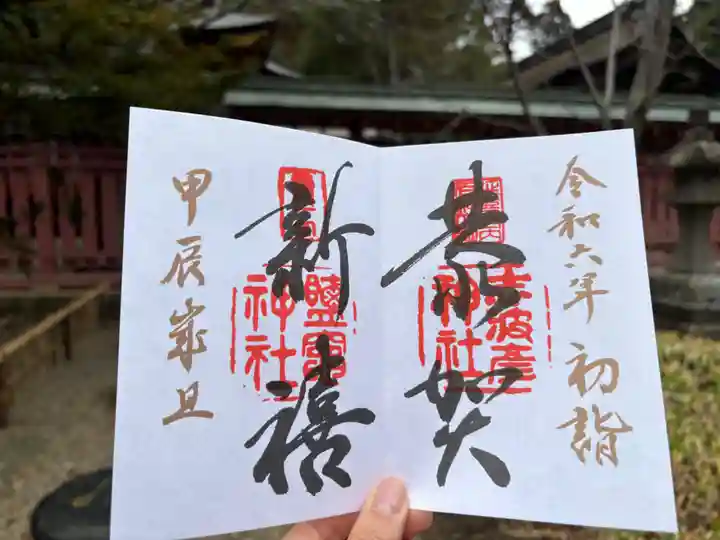 令和六年 初詣
恭賀
志波彦神社
新禧
鹽竈神社
甲辰歳旦